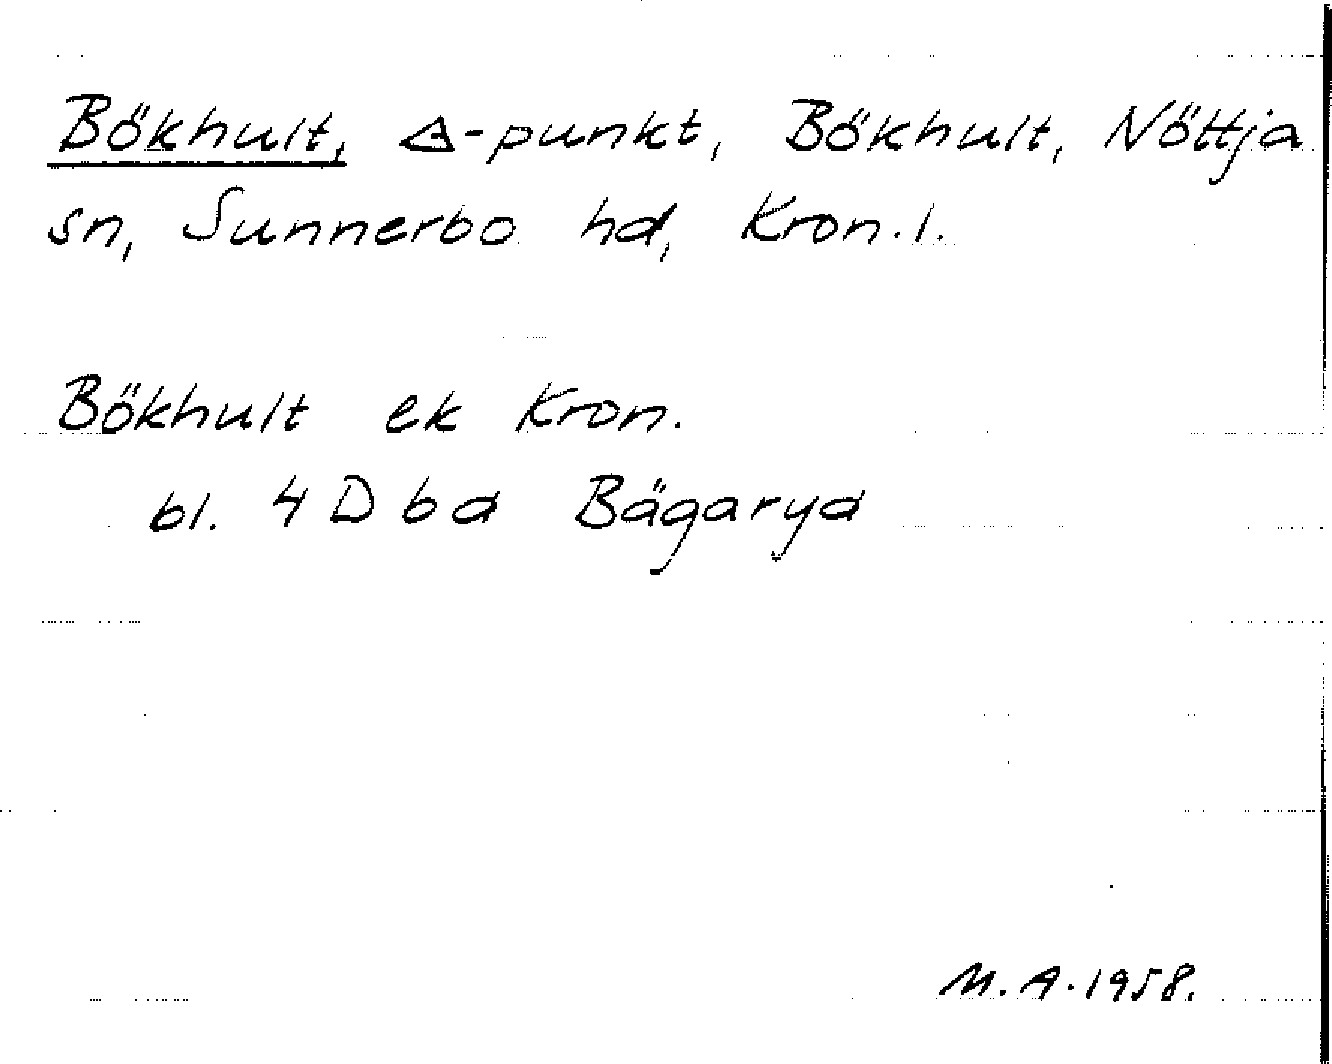 Bökhult, △-punkt, Bökhult, Nöttja
sn, Sunnerbo hd, Kron.l.
Bökhult ek Kron.
bl. 4 D b d Bägaryd
M.A. 1958.